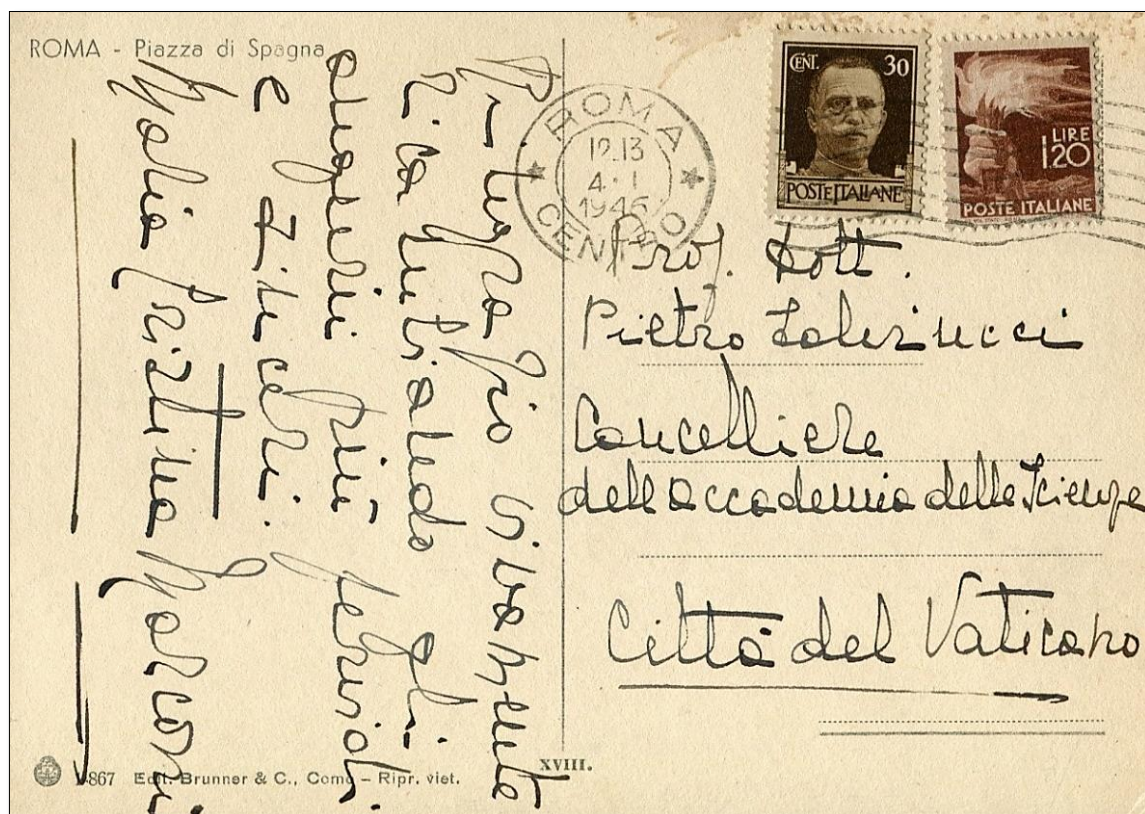 ROMA - Piazza di Spagna
Ringrazio vivamente
ricambiando gli
auguri più fervidi
e sinceri.
Maria Cristina Marconi
ROMA
12.13
4·I
1946
CENTRO
CENT. 30
POSTE ITALIANE
LIRE
1,20
POSTE ITALIANE
Prof. Dott.
Pietro
Cancelliere
dell'Accademia delle Scienze
Città del Vaticano
867 Edit. Brunner & C., Como - Ripr. viet.
XVIII.